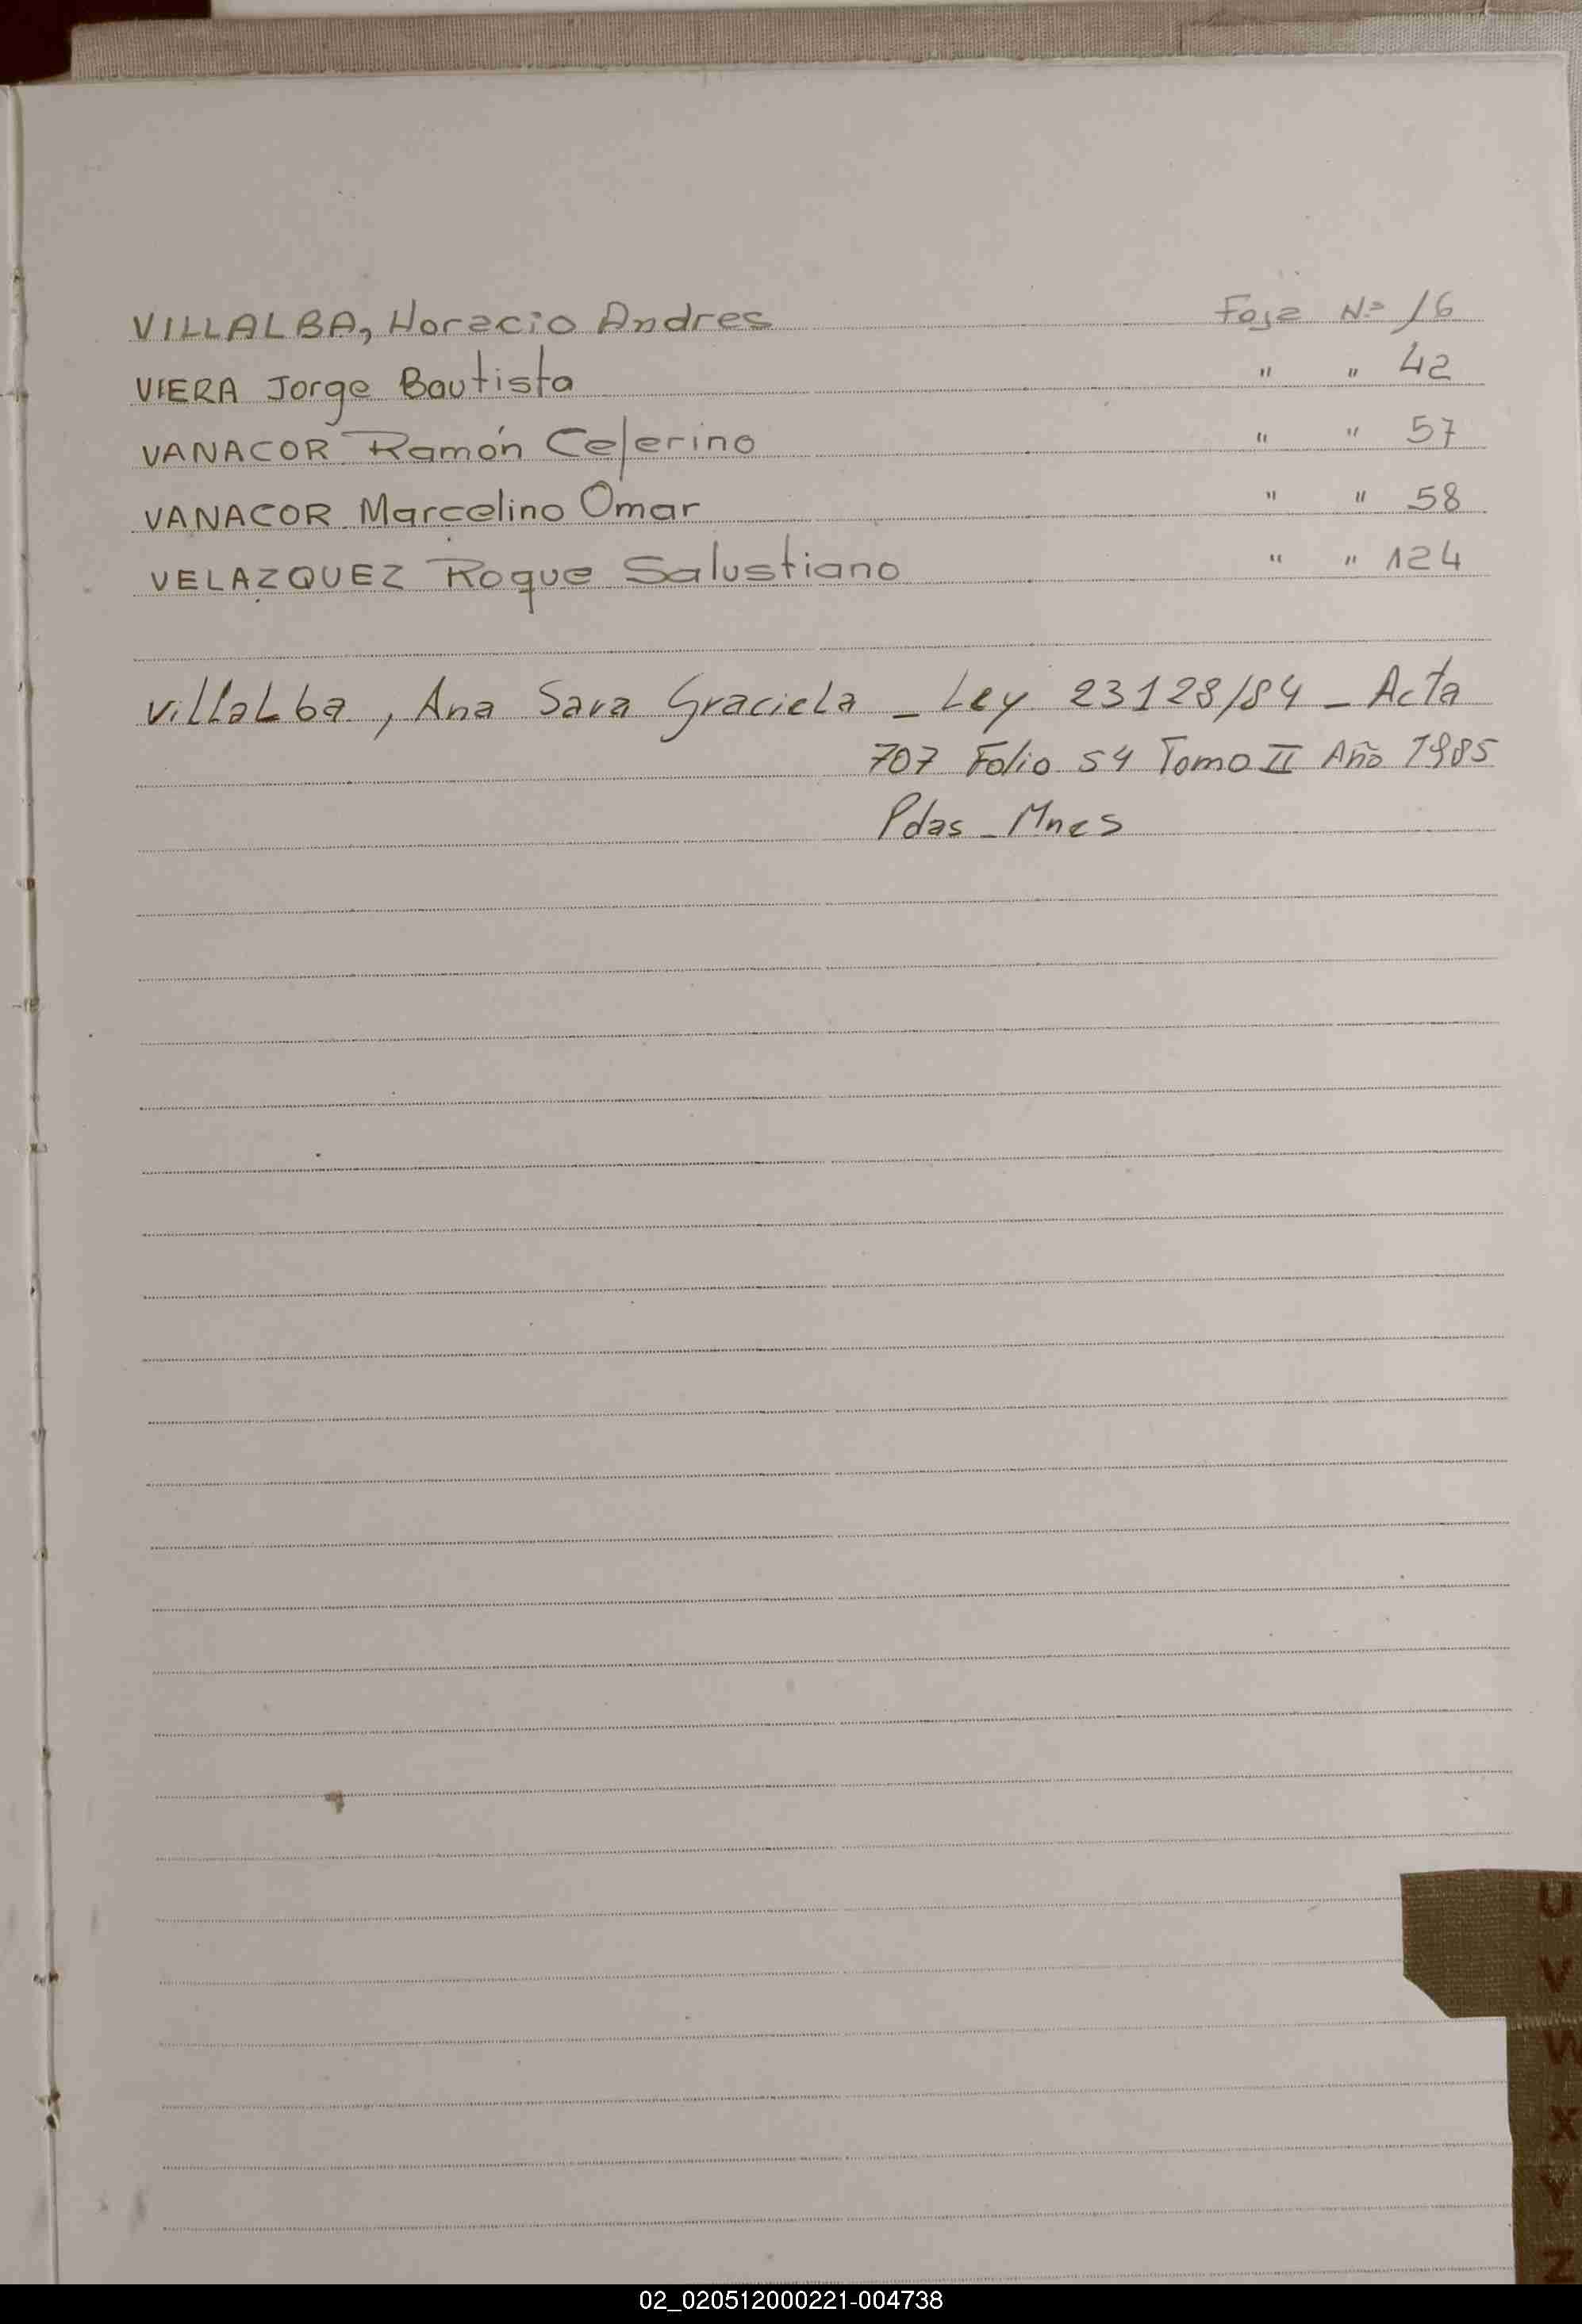 VILLALBA, Horacio Andres Foja Nº 16
VIERA Jorge Bautista " " 42
VANACOR Ramón Ceferino " " 57
VANACOR Marcelino Omar " " 58
VELAZQUEZ Roque Salustiano " " 124
VillaLba, Ana Sara Graciela - Ley 23128/84 - Acta
707 Folio 54 Tomo II Año 1985
Pdas - Mnes
U
V
W
X
Y
Z
02_020512000221-004738